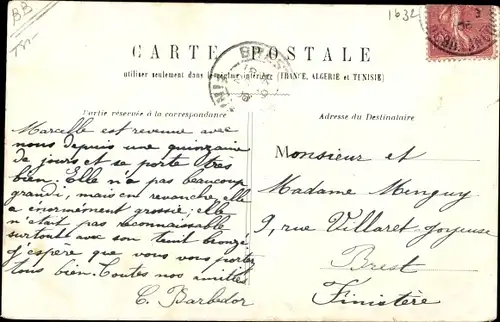 BB
1632
CARTE POSTALE
utiliser seulement dans le régime intérieur (FRANCE, ALGERIE et TUNISIE)
Partie réservée à la correspondance
Adresse du Destinataire
Marcelle est revenue avec
nous depuis une quinzaine
de jours et se porte très
bien. Elle n'a pas beaucoup
grandi, mais en revanche, elle
a énormément grossie; elle
n'était pas reconnaissable
surtout avec son teint bronzé
J'espère que vous vous portez
tous bien. Toutes nos amitiés
C. Barbedor
Monsieur et
Madame Menguy
9, rue Villaret Joyeuse
Brest
Finistère